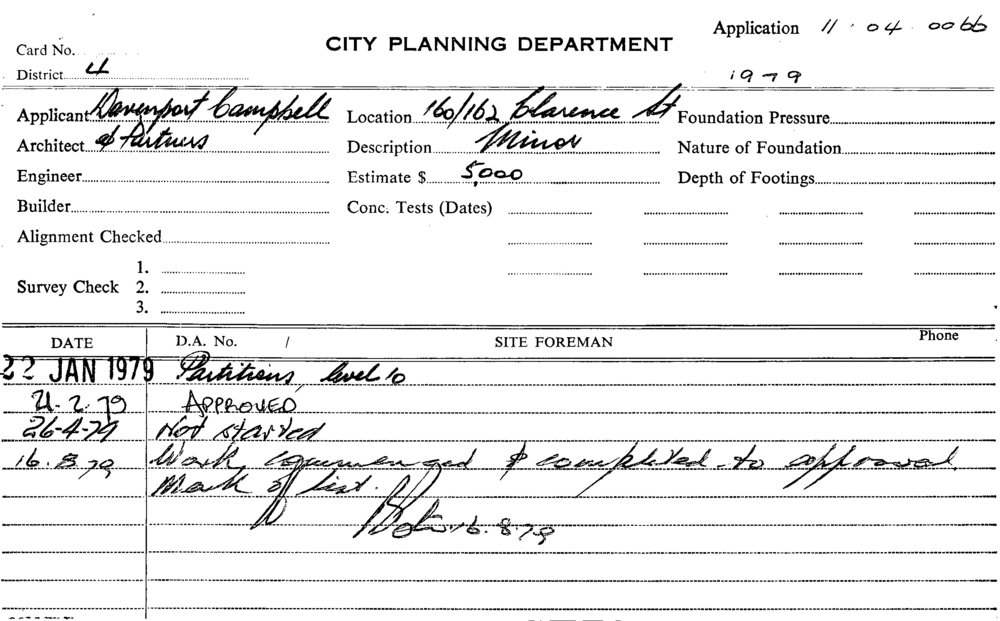 Application 11 . 04 . 0066
Card No.
CITY PLANNING DEPARTMENT
District 4
1979
Applicant Davenport Campbell
Location 160/162 Clarence St
Foundation Pressure
Architect & Partners
Description Minor
Nature of Foundation
Engineer
Estimate $ 5,000
Depth of Footings
Builder
Conc. Tests (Dates)
Alignment Checked
Survey Check 1.
2.
3.
DATE D.A. No. / SITE FOREMAN Phone
22 JAN 1979 Partitions, level 10
21-2-79 APPROVED
26-4-79 Not started
16.8.79 Work commenced & completed to approval
Mark off list.
16.8.79